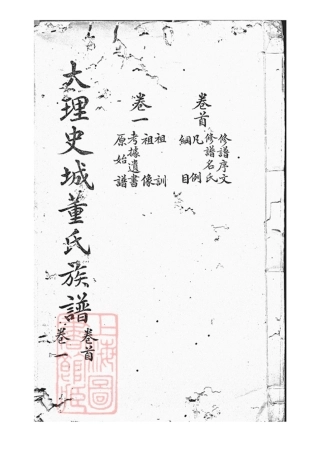 卷首
修譜序文
修譜名氏
凡例
綱目
卷一
祖訓
祖像
考據遺書
原始譜
大理史城董氏族譜
卷首
卷一
上海圖書館藏